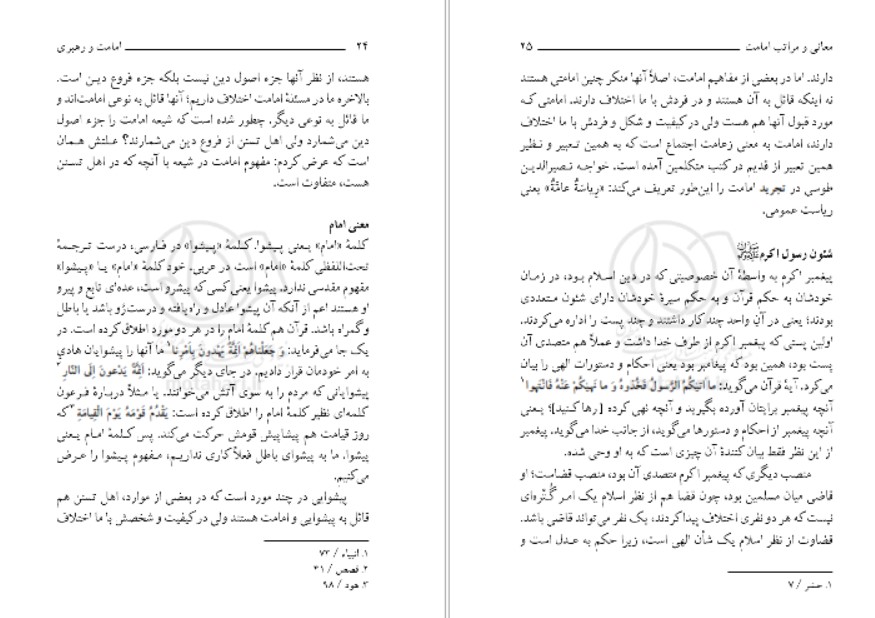 امامت و رهبری
۲۴
هستند، از نظر آنها جزء اصول دین نیست بلکه جزء فروع دین است.
بالاخره ما در مسئلهٔ امامت اختلاف داریم؛ آنها قائل به نوعی امامت‌اند و
ما قائل به نوعی دیگر. چطور شده است که شیعه امامت را جزء اصول
دین می‌شمارد ولی اهل تسنن از فروع دین می‌شمارند؟ علتش همان
است که عرض کردم: مفهوم امامت در شیعه با آنچه که در اهل تسنن
هست، متفاوت است.
معنی امام
کلمهٔ «امام» یعنی پیشوا. کلمهٔ «پیشوا» در فارسی، درست ترجمهٔ
تحت‌اللفظی کلمهٔ «امام» است در عربی. خود کلمهٔ «امام» یا «پیشوا»
مفهوم مقدسی ندارد. پیشوا یعنی کسی که پیشرو است، عده‌ای تابع و پیرو
او هستند اعم از آنکه آن پیشوا عادل و راه‌یافته و درست‌رُو باشد یا باطل
و گمراه باشد. قرآن هم کلمهٔ امام را در هر دو مورد اطلاق کرده است. در
یک جا می‌فرماید: وَ جَعَلْناهُمْ اَئِمَّةً یَهْدونَ بِاَمْرِنا۱ ما آنها را پیشوایان هادیِ
به امر خودمان قرار دادیم. در جای دیگر می‌گوید: اَئِمَّةً یَدْعونَ اِلَی النّارِ۲
پیشوایانی که مردم را به سوی آتش می‌خوانند. یا مثلاً دربارهٔ فرعون
کلمه‌ای نظیر کلمهٔ امام را اطلاق کرده است: یَقْدُمُ قَوْمَهُ یَوْمَ الْقِیامَةِ۳ که
روز قیامت هم پیشاپیش قومش حرکت می‌کند. پس کلمهٔ امام یعنی
پیشوا. ما به پیشوای باطل فعلاً کاری نداریم، مفهوم پیشوا را عرض
می‌کنیم.
پیشوایی در چند مورد است که در بعضی از موارد، اهل تسنن هم
قائل به پیشوایی و امامت هستند ولی در کیفیت و شخصش با ما اختلاف
۱. انبیاء / ۷۳
۲. قصص / ۴۱
۳. هود / ۹۸
معانی و مراتب امامت
۲۵
دارند. اما در بعضی از مفاهیم امامت، اصلاً آنها منکر چنین امامتی هستند
نه اینکه قائل به آن هستند و در فردش با ما اختلاف دارند. امامتی که
مورد قبول آنها هم هست ولی در کیفیت و شکل و فردش با ما اختلاف
دارند، امامت به معنی زعامت اجتماع است که به همین تعبیر و نظیر
همین تعبیر از قدیم در کتب متکلمین آمده است. خواجه نصیرالدین
طوسی در تجرید امامت را این‌طور تعریف می‌کند: «رِیاسَةٌ عامَّةٌ» یعنی
ریاست عمومی.
شئون رسول اکرم ﷺ
پیغمبر اکرم به واسطهٔ آن خصوصیتی که در دین اسلام بود، در زمان
خودشان به حکم قرآن و به حکم سیرهٔ خودشان دارای شئون متعددی
بودند؛ یعنی در آنِ واحد چند کار داشتند و چند پست را اداره می‌کردند.
اولین پستی که پیغمبر اکرم از طرف خدا داشت و عملاً هم متصدی آن
پست بود، همین بود که پیغامبر بود یعنی احکام و دستورات الهی را بیان
می‌کرد. آیهٔ قرآن می‌گوید: ما اتیکُمُ الرَّسولُ فَخُذوهُ وَ ما نَهیکُمْ عَنْهُ فَانْتَهوا۱
آنچه پیغمبر برایتان آورده بگیرید و آنچه نهی کرده [رها کنید]؛ یعنی
آنچه پیغمبر از احکام و دستورها می‌گوید، از جانب خدا می‌گوید. پیغمبر
از این نظر فقط بیان کنندهٔ آن چیزی است که به او وحی شده.
منصب دیگری که پیغمبر اکرم متصدی آن بود، منصب قضاست؛ او
قاضی میان مسلمین بود، چون قضا هم از نظر اسلام یک امر گُتره‌ای
نیست که هر دو نفری اختلاف پیدا کردند، یک نفر می‌تواند قاضی باشد.
قضاوت از نظر اسلام یک شأن الهی است، زیرا حکم به عدل است و
۱. حشر / ۷